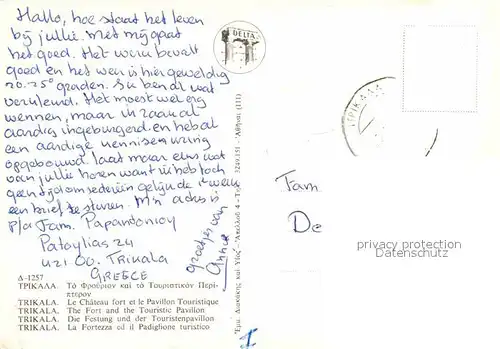 Hallo, hoe staat het leven
bij jullie. Met mij gaat
het goed. Het werk bevalt
goed en het weer is hier geweldig
20-25° graden. Ik ben al wat
verkleurd. Het moest wel erg
wennen, maar ik zaan al
aardig ingeburgerd en heb al
een aardige kennissenkring
opgebouwd. Laat maar eens wat
van jullie horen want ik heb toch
geen tijd om iedereen gelijk de 1e week
een brief te sturen. M'n adres is
P/a Fam. Papandoniou
Patoylias 24
421 00. Trikala
GREECE
groetjes van
DELTA
ΤΡΙΚΑΛΑ
Fam
De
privacy protection
Datenschutz
Δ-1257
ΤΡΙΚΑΛΑ. Τὸ Φρούριον καὶ τὸ Τουριστικὸν Περί-
πτερον
TRIKALA. Le Château fort et le Pavillon Touristique
TRIKALA. The Fort and the Touristic Pavilion
TRIKALA. Die Festung und der Touristenpavillon
TRIKALA. La Fortezza ed il Padiglione turistico